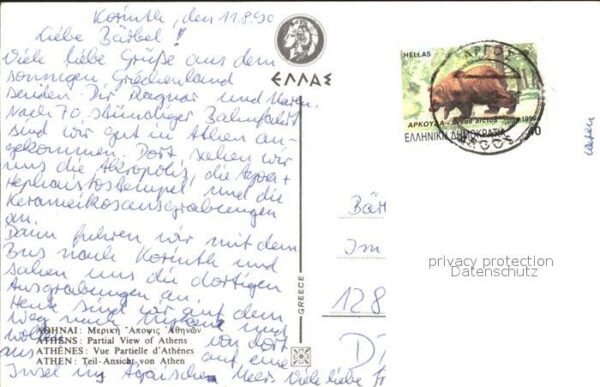 Korinth, den 11.8.90
Liebe Bärbel!
Viele liebe Grüße aus dem
sonnigen Griechenland
senden Dir Ragnar und Maren.
Nach 70 stündiger Bahnfahrt
sind wir gut in Athen an-
gekommen. Dort sahen wir
uns die Akropolis, die Agora +
Hephaistostempel und die
Kerameikosausgrabungen
an.
Dann fuhren wir mit dem
Bus nach Korinth und
sahen uns die dortigen
Ausgrabungen an.
Heute sind wir auf dem
Weg nach und
wollen von dort
aus auf eine
Insel im Ägäischen Meer. Viele liebe
ΑΘΗΝΑΙ: Μερική Ἄποψις Ἀθηνῶν
ATHENS: Partial View of Athens
ATHÈNES: Vue Partielle d'Athènes
ATHEN: Teil-Ansicht von Athen
ΕΛΛΑΣ
GREECE
HELLAS
ΑΡΚΟΥΔΑ - Ursus arctos 1990
ΕΛΛΗΝΙΚΗ ΔΗΜΟΚΡΑΤΙΑ
ΑΡΓΟΣ
ARGOS
Bär
Im
128
D
privacy protection
Datenschutz